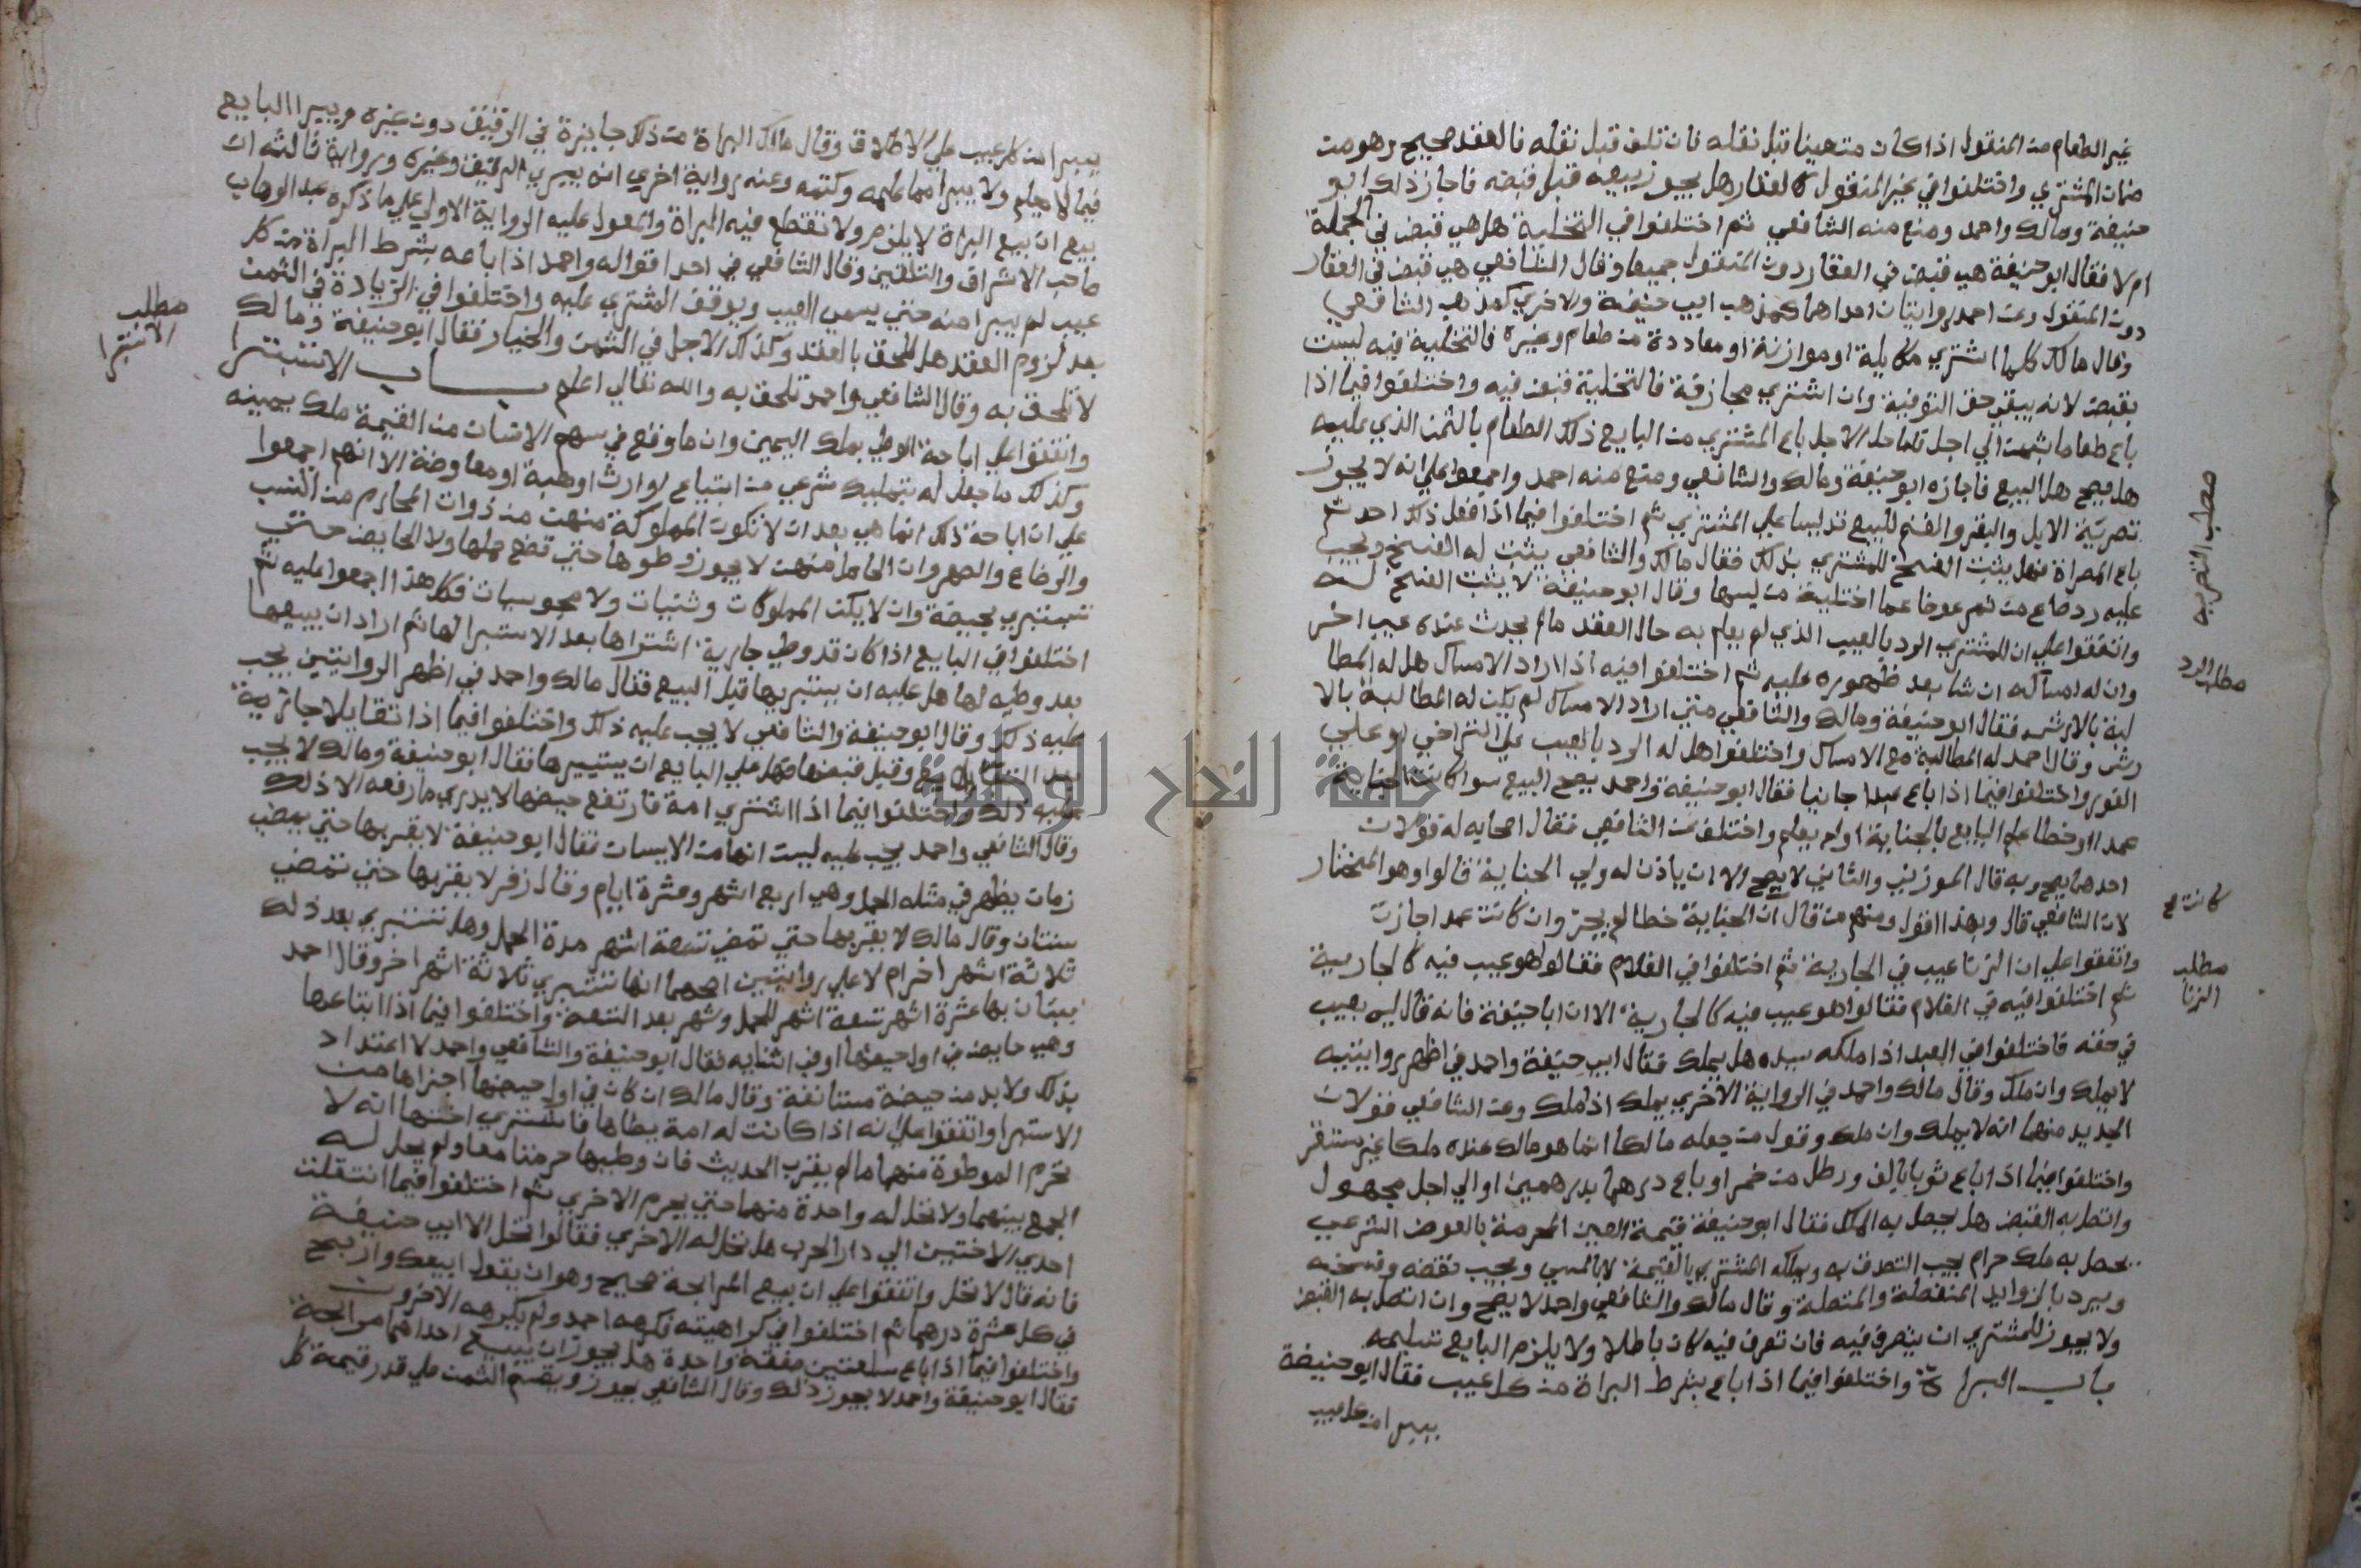 غير الطعام من المنقول اذا كان متعينا قبل نقله فان تلف قبل نقله فالعقد صحيح وهو من
ضمان المشتري واختلفوا في غير المنقول كالعقار هل يجوز بيعه قبل قبضه فاجاز ذلك ابو
حنيفة ومالك واحمد ومنع منه الشافعي ثم اختلفوا في التخلية هل هي قبض في الجملة
ام لا فقال ابو حنيفة هي قبض في العقار دون المنقول جميعا وقال الشافعي هي قبض في العقار
دون المنقول وعن احمد روايتان احداهما كمذهب ابي حنيفة والاخرى كمذهب الشافعي
وقال مالك كلما اشتري مكايلة او موازنة او معاددة من طعام وغيره فالتخلية فيه ليست
بقبض لانه يبقى حق التوفية وان اشتري مجازفة فالتخلية قبض فيه واختلفوا فيما اذا
باع طعاما بثمن الي اجل فلما حل الاجل باع المشتري من البايع ذلك الطعام بالثمن الذي عليه
هل يصح هذا البيع فاجازه ابو حنيفة ومالك والشافعي ومنع منه احمد واجمعوا علي انه لا يجوز
تصرية الابل والبقر والغنم للبيع تدليسا علي المشتري ثم اختلفوا فيما اذا فعل ذلك احد ثم
باع المصراة فهل يثبت الفسخ للمشتري بذلك فقال مالك والشافعي يثبت له الفسخ ويجب
عليه رد صاع من تمر عوضا عما احتلبه من لبنها وقال ابو حنيفة لا يثبت الفسخ له
واتفقوا علي ان للمشتري الرد بالعيب الذي لم يعلم به حال العقد ما لم يحدث عنده عيب اخر
وان له امساكه ان شا بعد ظهوره عليه ثم اختلفوا فيه اذا اراد الامساك هل له المطا
لبة بالارش فقال ابو حنيفة ومالك والشافعي متي اراد الامساك لم يكن له المطالبة بالا
رش وقال احمد له المطالبة مع الامساك واختلفوا هل له الرد بالعيب علي التراخي او علي
الفور واختلفوا فيما اذا باع عبدا جانيا فقال ابو حنيفة واحمد يصح البيع سوا كانت الجناية
عمدا او خطا علم البايع بالجناية او لم يعلم واختلف عن الشافعي فقال اصحابه له قولان
احدهما يصح وبه قال المزني والثاني لا يصح الا ان ياذن له ولي الجناية قالوا وهو المختار
لان الشافعي قال وبهذا اقول ومنهم من قال ان الجناية خطا لم يجز وان كانت عمدا جازت
واتفقوا علي ان الزنا عيب في الجارية ثم اختلفوا في الغلام فقالوا هو عيب فيه كالجارية
ثم اختلفوا فيه في الغلام فقالوا هو عيب فيه كالجارية الا ان ابا حنيفة فانه قال ليس بعيب
في حقه فاختلفوا في العبد اذا ملكه سيده هل يملك فقال ابي حنيفة واحمد في اظهر روايتيه
لا يملك وان ملك وقال مالك واحمد في الرواية الاخري يملك اذا ملك وعن الشافعي قولان
الجديد منهما انه لا يملك وان ملك وقول من جعله مالكا انما هو مالك عنده ملكا غير مستقر
واختلفوا فيما اذا باع ثوبا بالف ورطل من خمر او باع درهما بدرهمين او الي اجل مجهول
واتصل به القبض هل يحصل به الملك فقال ابو حنيفة قيمة العين المحرمة بالعوض الشرعي
يحصل به ملك حرام يجب التصدق به ويملكه المشتري بالقيمة لا بالمسمي ويجب نقضه وفسخه
ويرد بالزوايد المنفصلة والمتصلة وقال مالك والشافعي واحمد لا يصح وان اتصل به القبض
ولا يجوز للمشتري ان يتصرف فيه فان تصرف فيه كان باطلا ولا يلزم البايع تسليمه
باب البراة واختلفوا فيما اذا باع بشرط البراة من كل عيب فقال ابو حنيفة
يبرا من كل عيب
مطلب التصرية
مطلب الرد
كانت
مطلب
الزنا
يبرا من كل عيب علي الاطلاق وقال مالك البراة من ذلك جايزة في الرقيق دون غيره ويبرا البايع
فيما لا يعلم ولا يبرا مما علمه وكتمه وعنه رواية اخري انه يبري الرقيق وغيره ورواية ثالثة ان
بيع ان بيع البراة لا يلزم ولا تقطع فيه البراة والمعول عليه الرواية الاولي علي ما ذكره عبد الوهاب
صاحب الاشراق والتلقين وقال الشافعي في احد اقواله واحمد اذا باعه بشرط البراة من كل
عيب لم يبرا منه حتي يسمي العيب ويوقف المشتري عليه واختلفوا في الزيادة في الثمن
بعد لزوم العقد هل تلحق بالعقد وكذلك الاجل في الثمن والخيار فقال ابو حنيفة ومالك
لا تلحق به وقال الشافعي واحمد تلحق به والله تعالي اعلم باب الاستبرا
واتفقوا علي اباحة الوطي بملك اليمين وان ما وقع في سهم الانسان من الغنيمة ملك يمينه
وكذلك ما جعل له بتمليك شرعي من ابتياع او ارث او هبة او معاوضة الا انهم اجمعوا
علي ان اباحة ذلك انما هي بعد ان لا تكون المملوكة منهن من ذوات المحارم من النسب
والرضاع والصهر وان الحامل منهن لا يجوز وطوها حتي تضع حملها ولا الحايض حتي
تستبري بحيضة وان لا يكن المملوكات وثنيات ولا مجوسيات فكل هذا اجمعوا عليه ثم
اختلفوا في البايع اذا كان قد وطي جارية اشتراها بعد الاستبرا لها ثم اراد ان يبيعها
بعد وطيه لها هل عليه ان يستبريها قبل البيع فقال مالك واحمد في اظهر الروايتين يجب
عليه ذلك وقال ابو حنيفة والشافعي لا يجب عليه ذلك واختلفوا فيما اذا تقايلا جارية
بعد البيع وقبل قبضها فهل علي البايع ان يستبريها فقال ابو حنيفة ومالك لا يجب
عليه ذلك واختلفوا فيما اذا اشتري امة فارتفع حيضها لا يدري ما رفعه الا ذلك
وقال الشافعي واحمد يجب عليه ليست انها من الايسات فقال ابو حنيفة لا يقربها حتي يمضي
زمان يظهر في مثله الحمل وهي اربع اشهر وعشرة ايام وقال زفر لا يقربها حتي تمضي
سنتان وقال مالك لا يقربها حتي تمضي تسعة اشهر مدة الحمل وهل تستبري بعد ذلك
ثلاثة اشهر اخر ام لا علي روايتين اصحهما انها تستبري ثلاثة اشهر اخر وقال احمد
يستان بها عشرة اشهر تسعة اشهر للحمل وشهر بعد التسعة واختلفوا فيما اذا ابتاعها
وهي حايض في اول حيضها او في اثنايه فقال ابو حنيفة والشافعي واحمد لا اعتداد
بذلك ولا بد من حيضة مستانفة وقال مالك ان كان في اول حيضها اجزاها من
الاستبرا واتفقوا علي انه اذا كانت له امة يطاها فاشتري اختها انه لا
تحرم الموطوة منهما ما لم يقرب الحديث فان وطيها حرمتا معا ولم يحل له
الجمع بينهما ولا تحل له واحدة منهما حتي يحرم الاخري ثم اختلفوا فيما انتقلت
احدي الاختين الي دار الحرب هل تحل له الاخري فقالوا تحل الا ابي حنيفة
فانه قال لا تحل واتفقوا علي ان بيع المرابحة صحيح وهو ان يقول ابيعك واربح
في كل عشرة درهما ثم اختلفوا في كراهيته فكرهه احمد ولم يكرهه الاخرون
واختلفوا فيما اذا باع سلعتين صفقة واحدة هل يجوز ان يبيع احداهما مرابحة
فقال ابو حنيفة واحمد لا يجوز ذلك وقال الشافعي يجوز ويقسم الثمن علي قدر قيمة كل
مطلب
الاستبرا
جامعة النجاح الوطنية